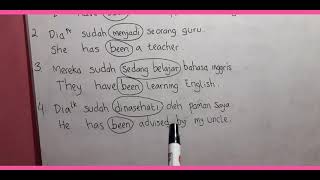 2. Dia Pr sudah menjadi seorang guru.
She has been a teacher
3. Mereka sudah sedang belajar bahasa inggris
They have been learning English.
4. Dia lk sudah dinasehati oleh paman saya
He has been advised by my uncle.